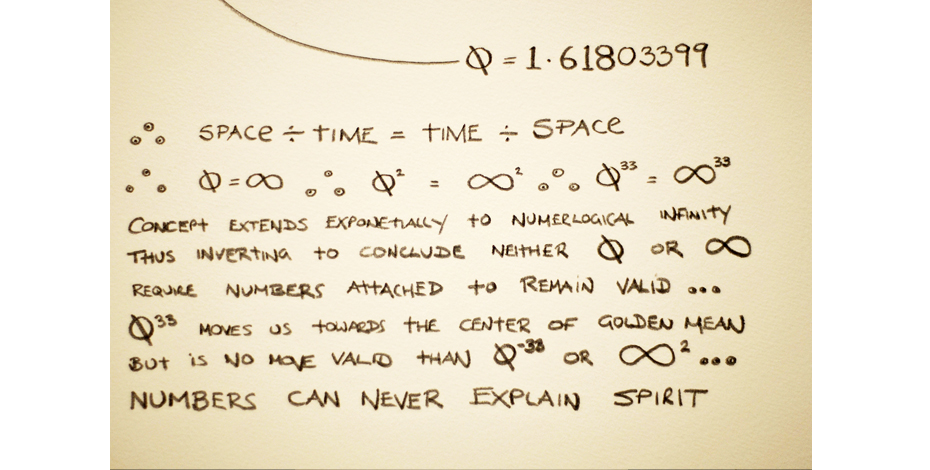 Φ = 1.61803399
∴ SPACE ÷ TIME = TIME ÷ SPACE
∴ Φ = ∞ ∴ Φ² = ∞² ∴ Φ³³ = ∞³³
CONCEPT EXTENDS EXPONETIALLY TO NUMERLOGICAL INFINITY
THUS INVERTING TO CONCLUDE NEITHER Φ OR ∞
REQUIRE NUMBERS ATTACHED TO REMAIN VALID ...
Φ³³ MOVES US TOWARDS THE CENTER OF GOLDEN MEAN
BUT IS NO MOVE VALID THAN Φ⁻³³ OR ∞² ...
NUMBERS CAN NEVER EXPLAIN SPIRIT